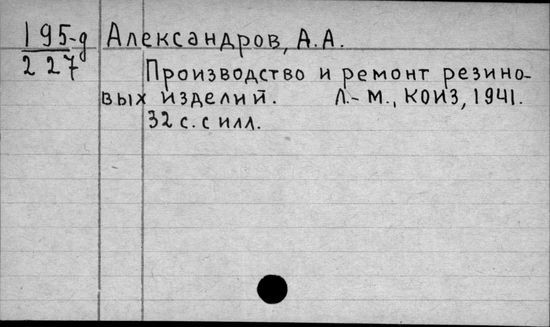 195-д
227
Александров, А.А.
Производство и ремонт резино-
вых изделий. Л.-М., КОИЗ, 1941.
32 с. с илл.